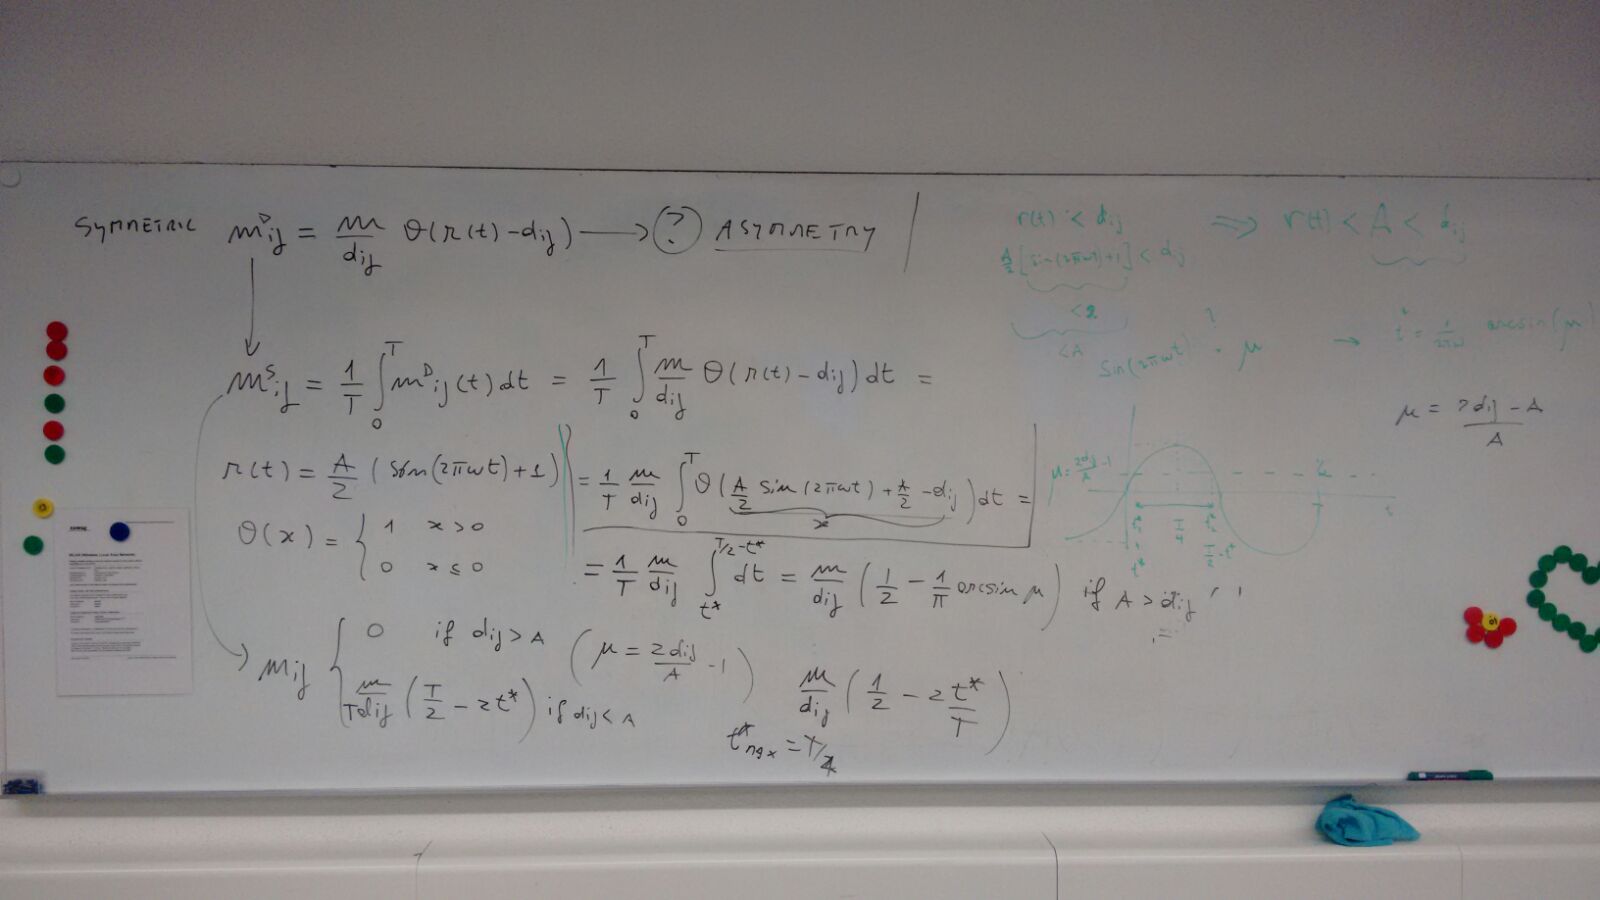 SYMMETRIC m^D_ij = m/d_ij θ(r(t) - d_ij) → (?) ASYMMETRY
m^S_ij = 1/T ∫_0^T m^D_ij(t) dt = 1/T ∫_0^T m/d_ij θ(r(t) - d_ij) dt =
r(t) = A/2 (sin(2πωt) + 1)
= 1/T m/d_ij ∫_0^T θ(A/2 sin(2πωt) + A/2 - d_ij) dt =
x
θ(x) = { 1 x > 0
0 x ≤ 0
= 1/T m/d_ij ∫_{t*}^{T/2 - t*} dt = m/d_ij (1/2 - 1/π arcsin μ) if A > d_ij
m_ij { 0 if d_ij > A (μ = 2d_ij/A - 1)
m/(T d_ij) (T/2 - 2t*) if d_ij < A
m/d_ij (1/2 - 2 t*/T)
t*_max = T/4
r(t) < d_ij ⇒ r(t) < A < d_ij
A/2 [sin(2πωt) + 1] < d_ij
< 2
< A
?
sin(2πωt) = μ → t* = 1/(2πω) arcsin(μ)
μ = (2d_ij - A)/A
μ = 2d_ij/A - 1
T/4
t*
T/2 - t*
T
t